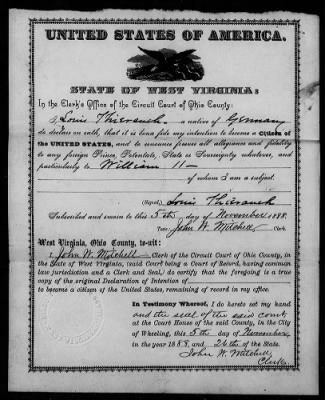 UNITED STATES OF AMERICA.
STATE OF WEST VIRGINIA:
In the Clerk's Office of the Circuit Court of Ohio County:
I, Louis Thierauch a native of Germany
do declare on oath, that it is bona fide my intention to become a Citizen of
the UNITED STATES, and to renounce forever all allegiance and fidelity
to any foreign Prince, Potentate, State or Sovereignty whatever, and
particularly to William II
of whom I am a subject.
(Signed,) Louis Thierauch
Subscribed and sworn to this 5th day of November 1888.
Teste: John W. Mitchell Clerk.
West Virginia, Ohio County, to-wit:
I John W. Mitchell Clerk of the Circuit Court of Ohio County,
in the State of West Virginia, (said Court being a Court of Record, having common
law jurisdiction and a Clerk and Seal,) do certify that the foregoing is a true
copy of the original Declaration of Intention of
to become a citizen of the United States, remaining of record in my office.
In Testimony Whereof, I do hereto set my hand
and the seal of the said court
at the Court House of the said County, in the City
of Wheeling, this 5th day of November
in the year 1888, and 26th of the State.
John W. Mitchell
Clerk